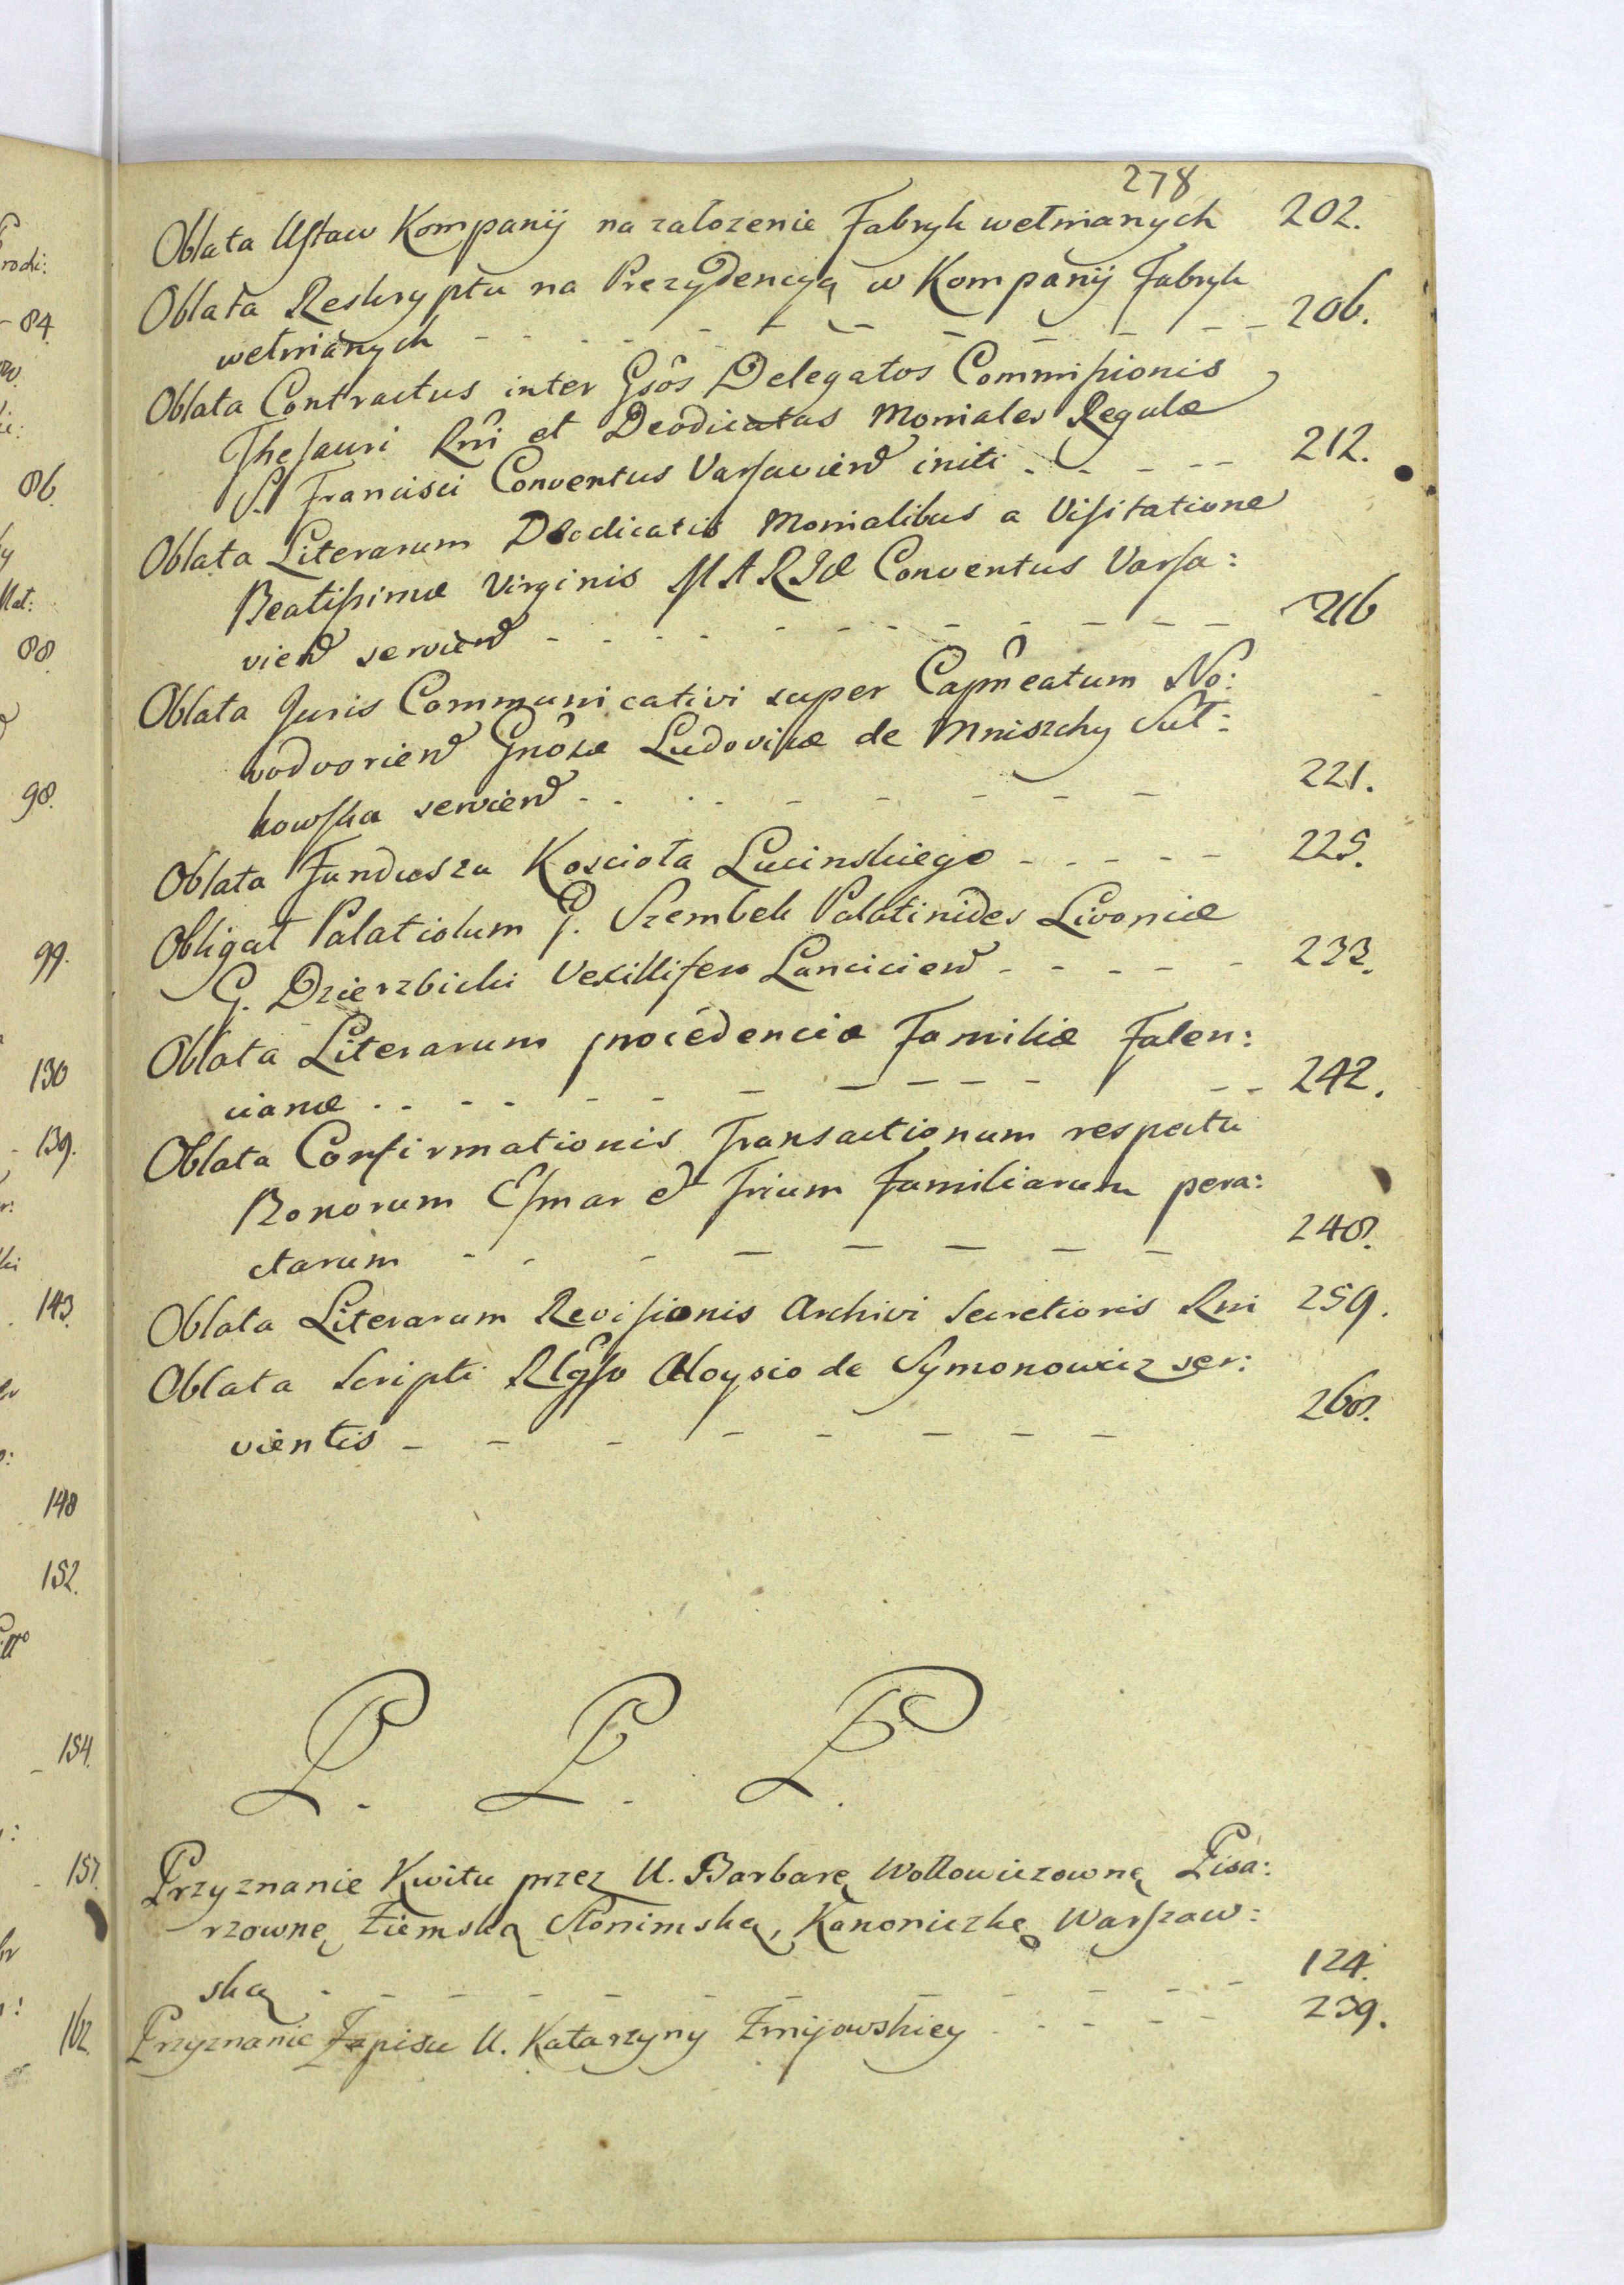 278
Oblata Ustaw Kompanij na zalozenie Fabryk wełnianych 202.
Oblata Reskryptu na Prezydencyą w Kompanij Fabryk
wełnianych - - - - - - - - - - 206.
Oblata Contractus inter Gsôs Delegatos Commissionis
Thesauri Rni et Deodicatas Moniales Regulæ
S. Francisci Conventus Varsavien initi - - - - - 212.
Oblata Literarum Deodicatis Monialibus a Visitatione
Beatissimæ Virginis MARIÆ Conventus Varsa:
vien servien - - - - - - - - - - 216
Oblata Juris Communicativi super Capneatum No:
vodvorien Gnôsæ Ludovicæ de Mniszchy Sut:
kowska servien - - - - - - - - 221.
Oblata Funduszu Koscioła Lucinskiego - - - - - 225.
Obligat Palatiolum G. Szembek Palatinides Livoniæ
G. Dzierzbicki Vexillifero Lancicien - - - - - 233.
Oblata Literarum procedenciæ Familiæ Falen:
cianæ - - - - - - - - - - - - 242.
Oblata Confirmationis Transactionum respectu
Bonorum Esmar et Trium Familiarum pera:
ctarum - - - - - - - - 248.
Oblata Literarum Revisionis Archivi Secretioris Rni 259.
Oblata Scripti Aloysio de Symonowicz ser:
vientis - - - - - - - - 268.
P. P. P.
Przyznanie Kwitu przez U. Barbarę Wołłowiczownę Pisa:
rzownę Ziemską Słonimską, Kanoniczkę Warszaw:
ską - - - - - - - - - - - 124.
Przyznanie Zapisu U. Katarzyny Zmijowskiey - - - - - 239.
84
86.
88
98.
99.
130
139.
143.
148
152.
154.
157.
162.